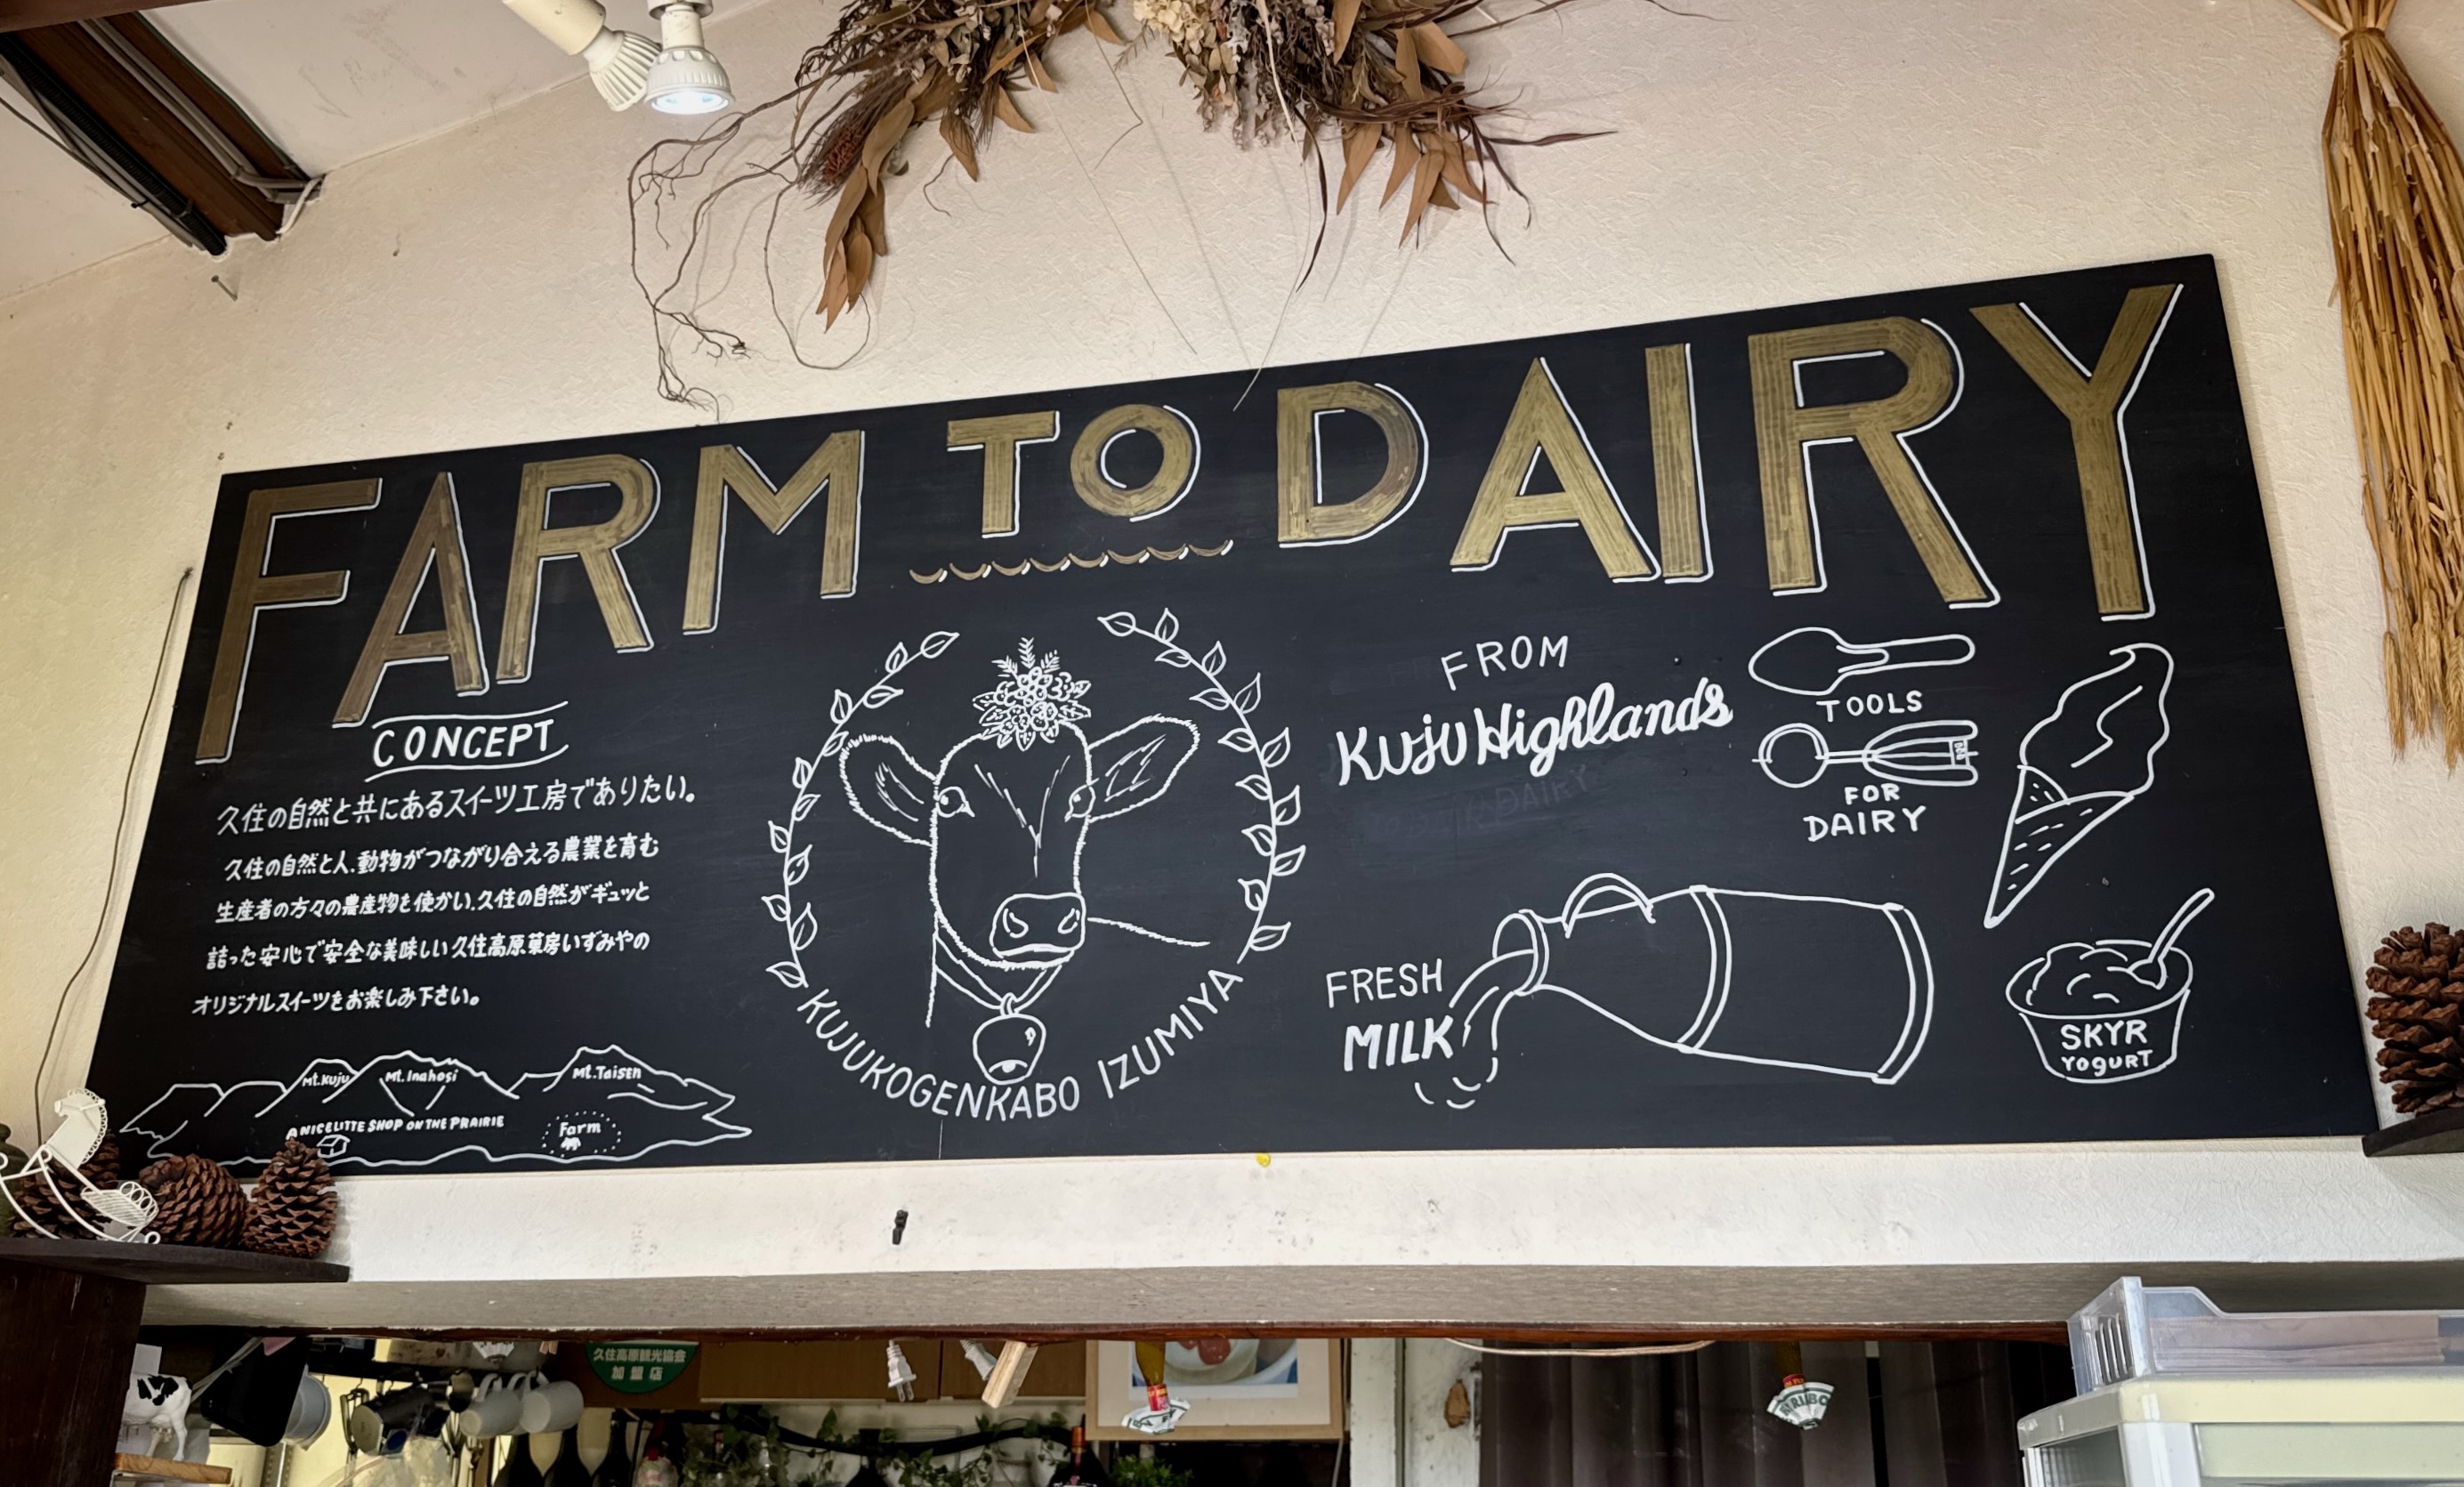 FARM TO DAIRY
CONCEPT
久住の自然と共にあるスイーツ工房でありたい。
久住の自然と人、動物がつながり合える農業を育む
生産者の方々の農産物を使かい、久住の自然がギュッと
詰った安心で安全な美味しい久住高原菓房いずみやの
オリジナルスイーツをお楽しみ下さい。
Mt.Kuju
Mt.Inahosi
Mt.Taisen
A NICE LITTE SHOP ON THE PRAIRIE
Farm
KUJUKOGENKABO IZUMIYA
FROM
Kuju Highlands
TOOLS
FOR
DAIRY
FRESH
MILK
SKYR
YOGURT
久住高原観光協会
加盟店